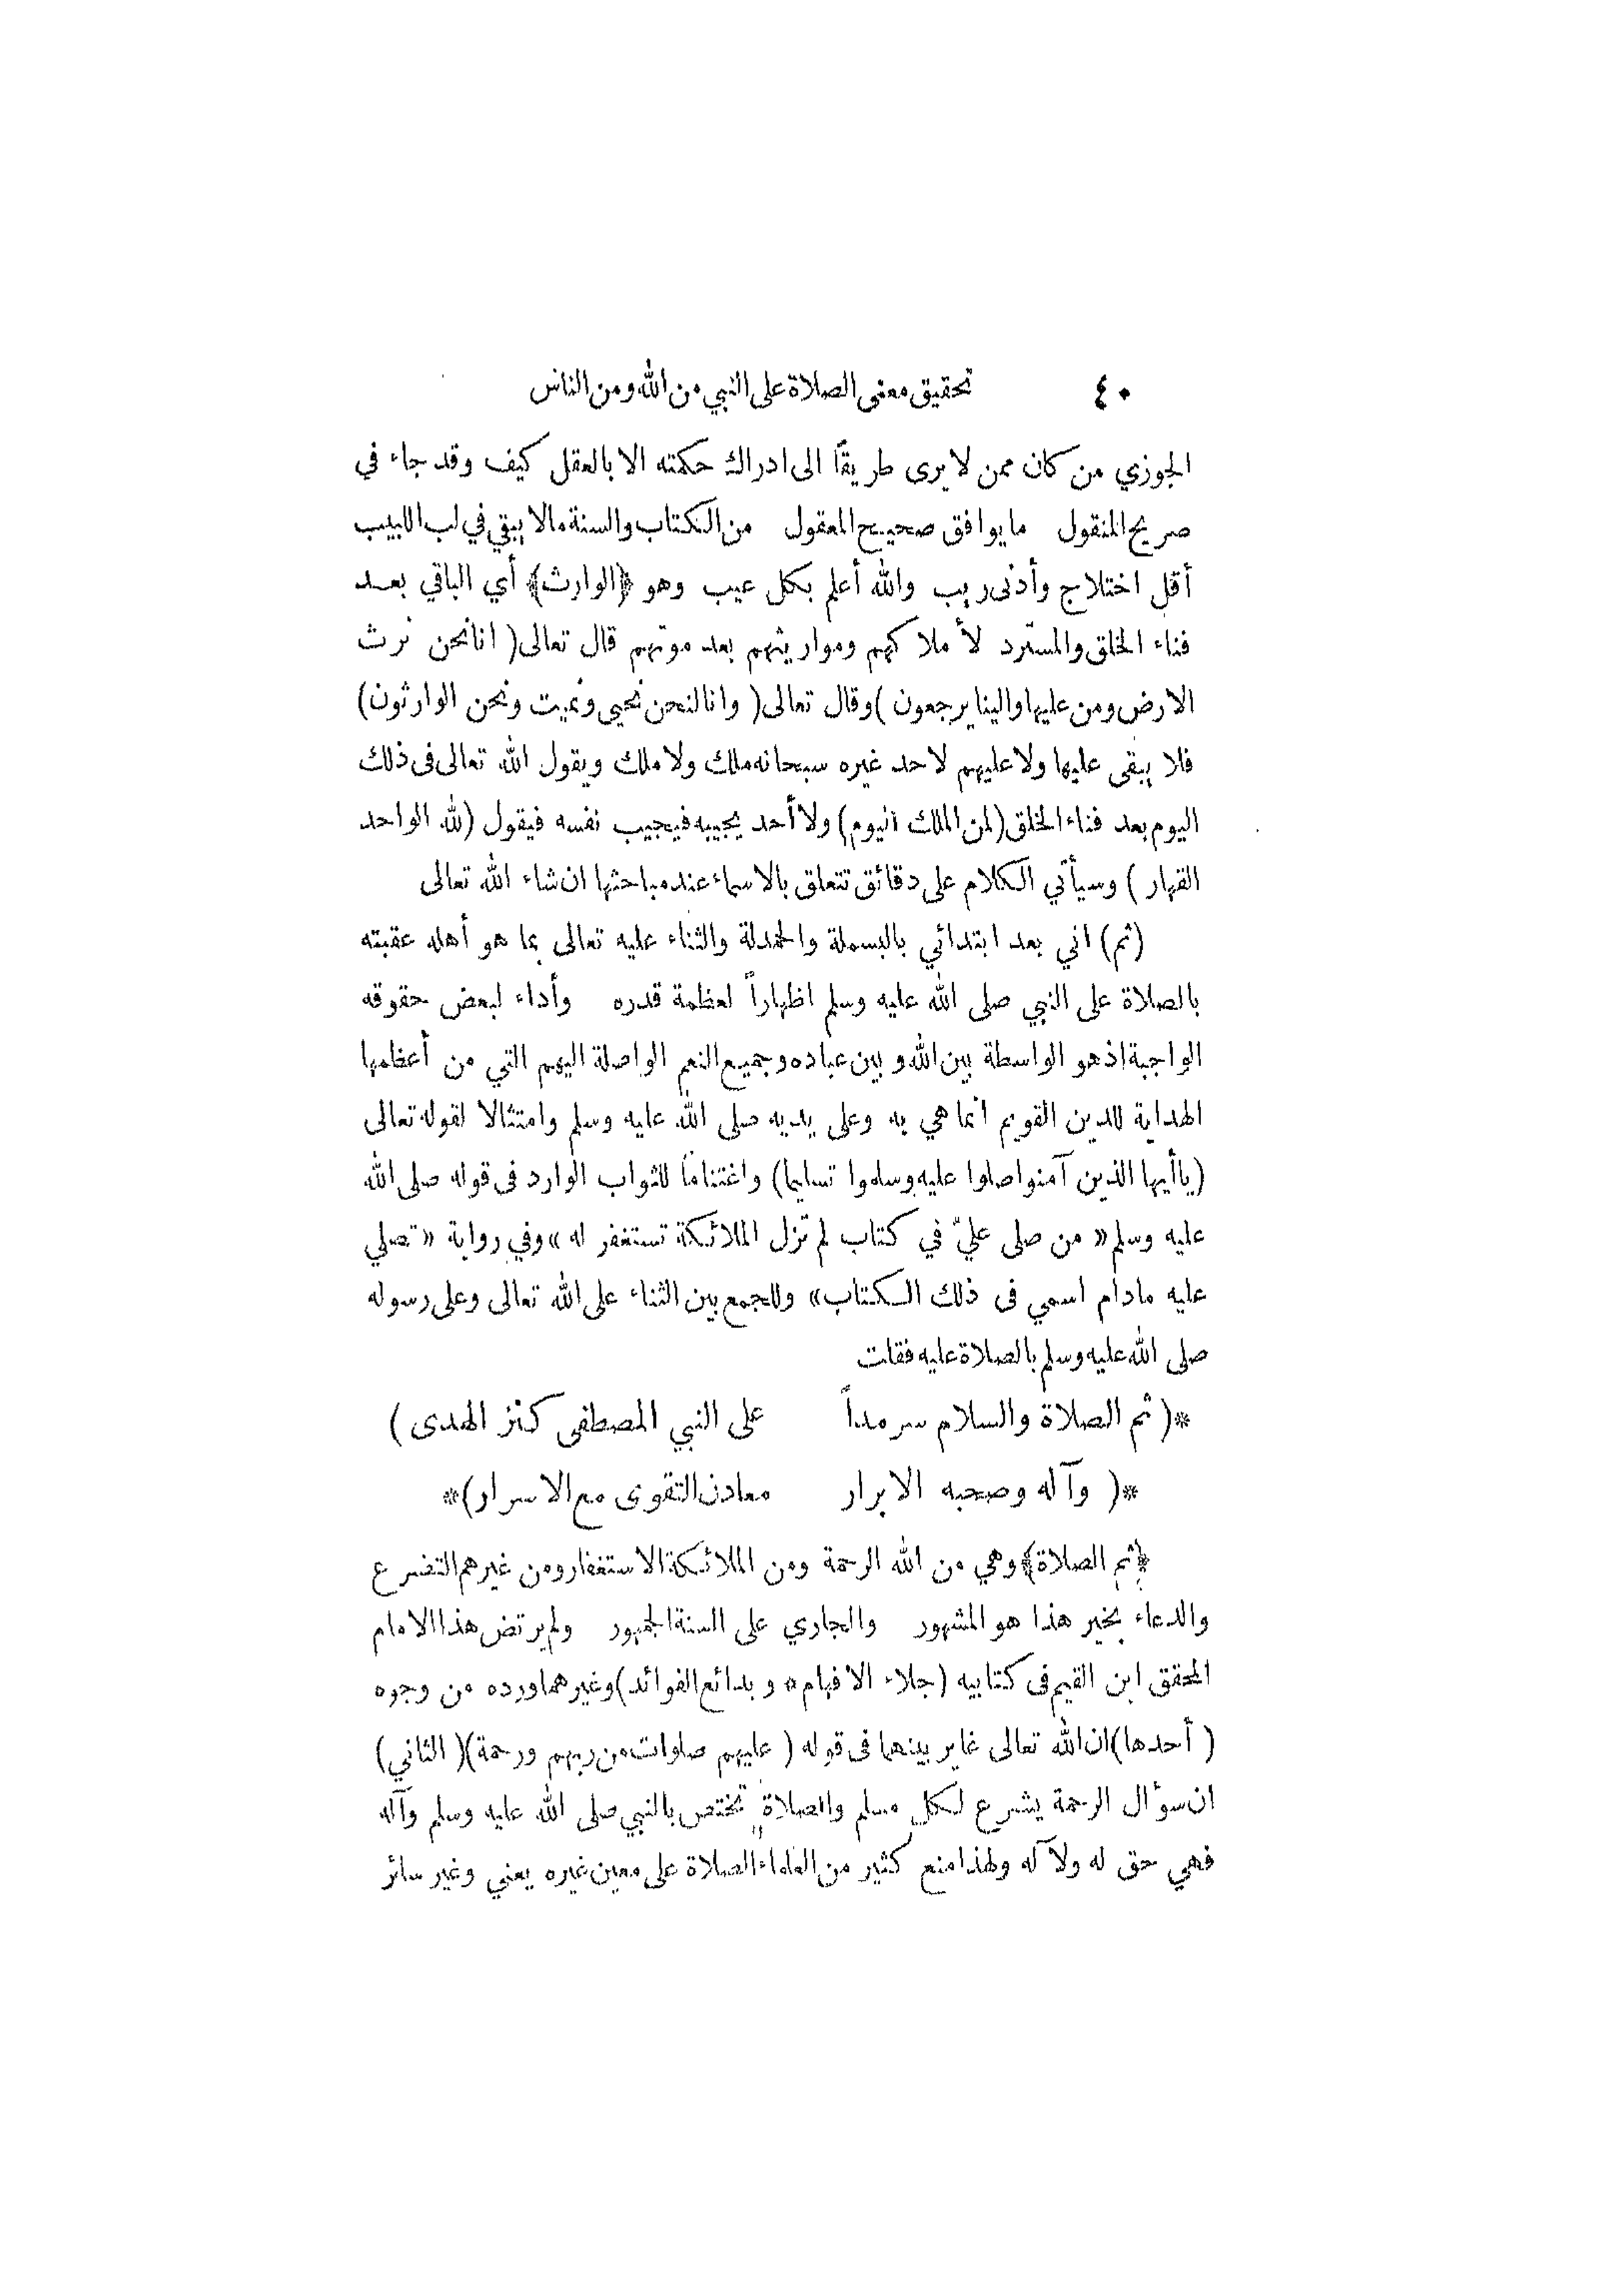 ٤٠ تحقيق معنى الصلاة على النبي من الله ومن الناس
الجوزي من كان ممن لا يرى طريقاً الى ادراك حكمته الا بالعقل كيف وقد جاء في
صريح المنقول ما يوافق صحيح المعقول من الكتاب والسنة ما لا يبقي في لب اللبيب
أقل اختلاج وأدنى ريب والله أعلم بكل عيب وهو ﴿الوارث﴾ أي الباقي بعد
فناء الخلق والمسترد لأملاكهم ومواريثهم بعد موتهم قال تعالى (انا نحن نرث
الارض ومن عليها والينا يرجعون) وقال تعالى (وانا لنحن نحيي ونميت ونحن الوارثون)
فلا يبقى عليها ولا عليهم لاحد غيره سبحانه ملك ولا ملك ويقول الله تعالى فى ذلك
اليوم بعد فناء الخلق (لمن الملك اليوم) ولا أحد يجيبه فيجيب نفسه فيقول (لله الواحد
القهار) وسيأتي الكلام على دقائق تتعلق بالاسماء عند مباحثها ان شاء الله تعالى
(ثم) اني بعد ابتدائي بالبسملة والحمدلة والثناء عليه تعالى بما هو أهله عقبته
بالصلاة على النبي صلى الله عليه وسلم اظهاراً لعظمة قدره وأداء لبعض حقوقه
الواجبة اذ هو الواسطة بين الله وبين عباده وجميع النعم الواصلة اليهم التي من أعظمها
الهداية للدين القويم انما هي به وعلى يديه صلى الله عليه وسلم وامتثالا لقوله تعالى
(يا أيها الذين آمنوا صلوا عليه وسلموا تسليما) واغتناماً للثواب الوارد فى قوله صلى الله
عليه وسلم «من صلى عليّ في كتاب لم تزل الملائكة تستغفر له» وفي رواية «تصلي
عليه مادام اسمي فى ذلك الكتاب» وللجمع بين الثناء على الله تعالى وعلى رسوله
صلى الله عليه وسلم بالصلاة عليه فقلت
*(ثم الصلاة والسلام سرمداً على النبي المصطفى كنز الهدى)
*(وآله وصحبه الابرار معادن التقوى مع الاسرار)*
﴿ثم الصلاة﴾ وهي من الله الرحمة ومن الملائكة الاستغفار ومن غيرهم التضرع
والدعاء بخير هذا هو المشهور والجاري على السنة الجمهور ولم يرتض هذا الامام
المحقق ابن القيم فى كتابيه (جلاء الافهام* وبدائع الفوائد) وغيرهما ورده من وجوه
(أحدها) ان الله تعالى غاير بينهما فى قوله (عليهم صلوات من ربهم ورحمة) (الثاني)
ان سؤال الرحمة يشرع لكل مسلم والصلاة تختص بالنبي صلى الله عليه وسلم وآله
فهي حق له ولآله ولهذا منع كثير من العلماء الصلاة على معين غيره يعني وغير سائر